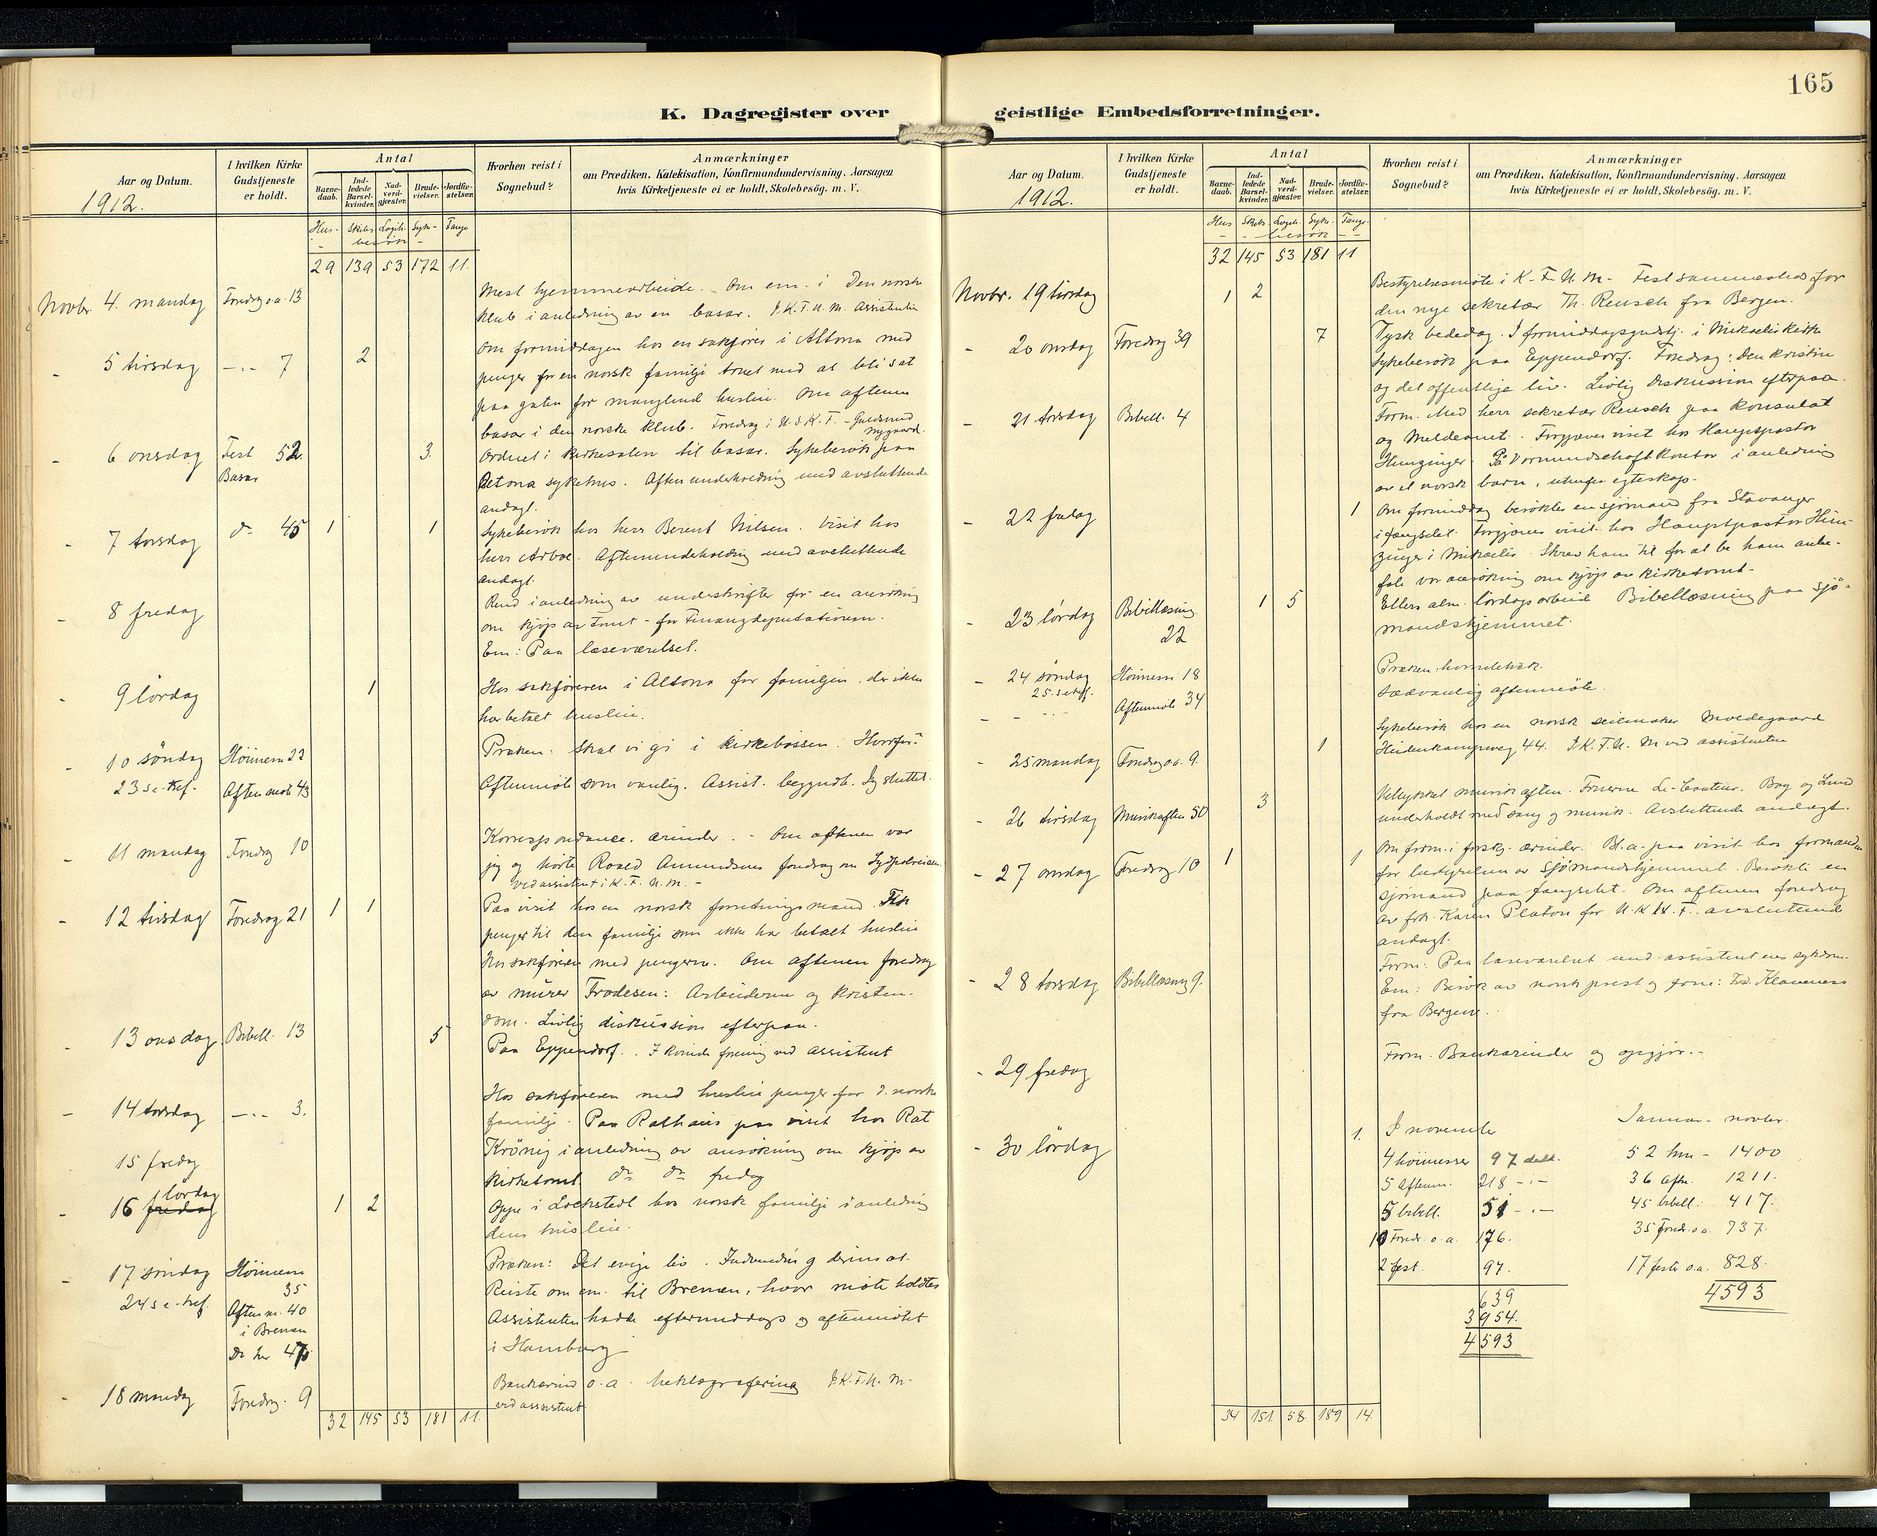 165
K. Dagregister over geistlige Embedsforretninger.
Aar og Datum.
1912.
I hvilken Kirke Gudstjeneste er holdt.
Antal
Barnedaab.
Indledede Barselkvinder.
Nadverdgjæster.
Brudevielser.
Jordfæstelser.
Hvorhen reist i Sognebud?
Anmærkninger
om Prædiken, Katekisation, Konfirmandundervisning, Aarsagen
hvis Kirketjeneste ei er holdt, Skolebesøg. m. V.
Hus- Skibs Logih- Syke- Fange
besøk
29 139 53 172 11.
Novbr. 4. mandag Foredrag o.a. 13
Mest hjemmearbeide. - Om em. i Den norske
klub i anledning av en basar. I K.F.U.M. Assistenten
- 5 tirsdag -"- 7 2
Om formiddagen hos en sakfører i Altona med
penger for en norsk familje truet med at bli sat
paa gaten for manglend husleie. Om aftenen
basar i den norske klub. Foredrag i U.S.K.F. - Guldsmed
Nygaard.
- 6 onsdag Fest 52 3.
Basar
Ordnet i kirkesalen til basar. Sykebesøk paa
Altona sykehus. Aftenunderholdning med avsluttende
andagt.
- 7 torsdag do 45 1 1
Sykebesøk hos herr Berent Nilsen. Visit hos
herr Arboe. Aftenunderholdning med avsluttende
andagt.
- 8 fredag
Rend i anledning av underskrifter for en ansøkning
om kjøp av tomt - for Finansdeputationen.
Em: Paa læseværelset.
- 9 lørdag 1
Hos sakføreren i Altona for familjen, der ikke
har betalt husleie.
- 10 søndag Høimesse 22
Præken: Skal vi gi i kirkebøssen. Hvorfor?
23 s.e.tref. Aftenmøte 43
Aftenmøte som vanlig. Assist. begyndte. Jeg sluttet.
- 11 mandag Foredrag 10
Korrespondance. ærinder. - Om aftenen var
jeg og hørte Roald Amundsens foredrag om Sydpolreisen.
ved assistent i K.F.U.M. -
- 12 tirsdag Foredrag 21 1 1
Paa visit hos en norsk forretningsmand. Fik
penger til den familje som ikke har betalt husleie
Hos sakføreren med pengene. Om aftenen foredrag
av murer Frodesen: Arbeiderne og kristen-
dom. Livlig diskussion efterpaa.
- 13 onsdag Bibell. 13 5
Paa Eppendorf. I kvindeforening ved assistent
- 14 torsdag -"- 3.
Hos sakføreren med husleiepenger for d. norske
familje. Paa Rathaus paa visit hos Rat
Krönig i anledning av ansøkning om kjøp av
15 fredag
kirketomt. do do fredag
- 16 lørdag 1 2
Oppe i Lockstedt hos norsk familje i anledning
dens husleie.
- 17 søndag Høimesse
35
Præken: Det evige liv.
24 s.e.tref. Aftenm. 40
i Bremen
do her 47
Reiste om em. til Bremen, hvor møte holdtes
Assistenten hadde eftermiddags og aftenmøtet
i Hamburg
- 18 mandag Foredrag. 9
Bankærind o.a. hektografering I K.F.U.M.
ved assistent
32 145 53 181 11.
Aar og Datum.
1912.
I hvilken Kirke Gudstjeneste er holdt.
Antal
Barnedaab.
Indledede Barselkvinder.
Nadverdgjæster.
Brudevielser.
Jordfæstelser.
Hvorhen reist i Sognebud?
Anmærkninger
om Prædiken, Katekisation, Konfirmandundervisning, Aarsagen
hvis Kirketjeneste ei er holdt, Skolebesög. m. V.
Hus Skibs Logih- Syke- Fange-
besøk
32 145 53 181 11
Novbr. 19 tirsdag 1 2
Bestyrelsesmøte i K.F.U.M. - Fest sammesteds for
den nye sekretær Th. Reusch fra Bergen.
- 20 onsdag Foredrag 39 7
Tysk bededag. I formiddagsgudstj. i Mikaeliskirke
Sykebesøk paa Eppendorf. Foredrag: Den kristne
og det offentlige liv. Livlig diskussion efterpaa.
- 21 torsdag Bibell. 4
Form. Med herr sekretær Reusch paa konsulat
og Meldeamt. Forgjæves visit hos Hauptpastor
Hunzinger. På Vormundschaftkontor i anledning
av et norsk barn, utenfor egteskap.
- 22 fredag 1
Om formiddag besøktes en sjømand fra Stavanger
i fængselet. Forgjæves visit hos Hauptpastor Hun-
zinger i Mikaelis. Skrev ham til for at be ham anbe-
fale vor ansøkning om kjøp av kirketomt.
- 23 lørdag Bibellæsning 1 5
22
Ellers alm. lørdagsarbeid. Bibellæsning paa Sjø-
mandshjemmet.
- 24 søndag Høimesse 18
25. s.e.tref.
Præken
- - Aftenmøte 34
Sædvanlig aftenmøte.
- 25 mandag Foredrag o.a. 9. 1
Sykebesøk hos en norsk seilmaker
Heidenkampsweg 44. I K.F.U.M ved assistenten
- 26 tirsdag Musikaften 50 3
Vellykket musikaften. Fruerne Le-Couteur, Bog og Lund
underholdt med sang og musik. Avsluttende andagt.
- 27 onsdag Foredrag 10 1 1
Om form. i forskj. ærinder. Bl.a. paa visit hos formanden
for bestyrelsen av Sjømandshjemmet. Besøkte en
sjømand paa fængselet. Om aftenen foredrag
av frk. Karen Platou for U.K.F. avsluttende
andagt.
- 28 torsdag Bibellæsning 9.
Form: Paa læseværelset und. assistentens sykdom.
Em: Besøk av norsk prest og frue: Klaveness
fra Bergen.
- 29 fredag
Form. Bankærinder og opgjør. -
- 30 lørdag 1.
I november
4 høimesser 97 delt.
5 Aftenm. 218 -"-
5 bibell. 51 -"-
10 Foredr. o.a. 176.
2 fest. 97.
639
3954.
4593
Januar - novbr.
52 hm - 1400
36 Aftn. 1211.
45 bibell. 417.
35 Foredr. o.a. 737.
17 feste o.a. 828.
4593
34 151. 58. 189 14.